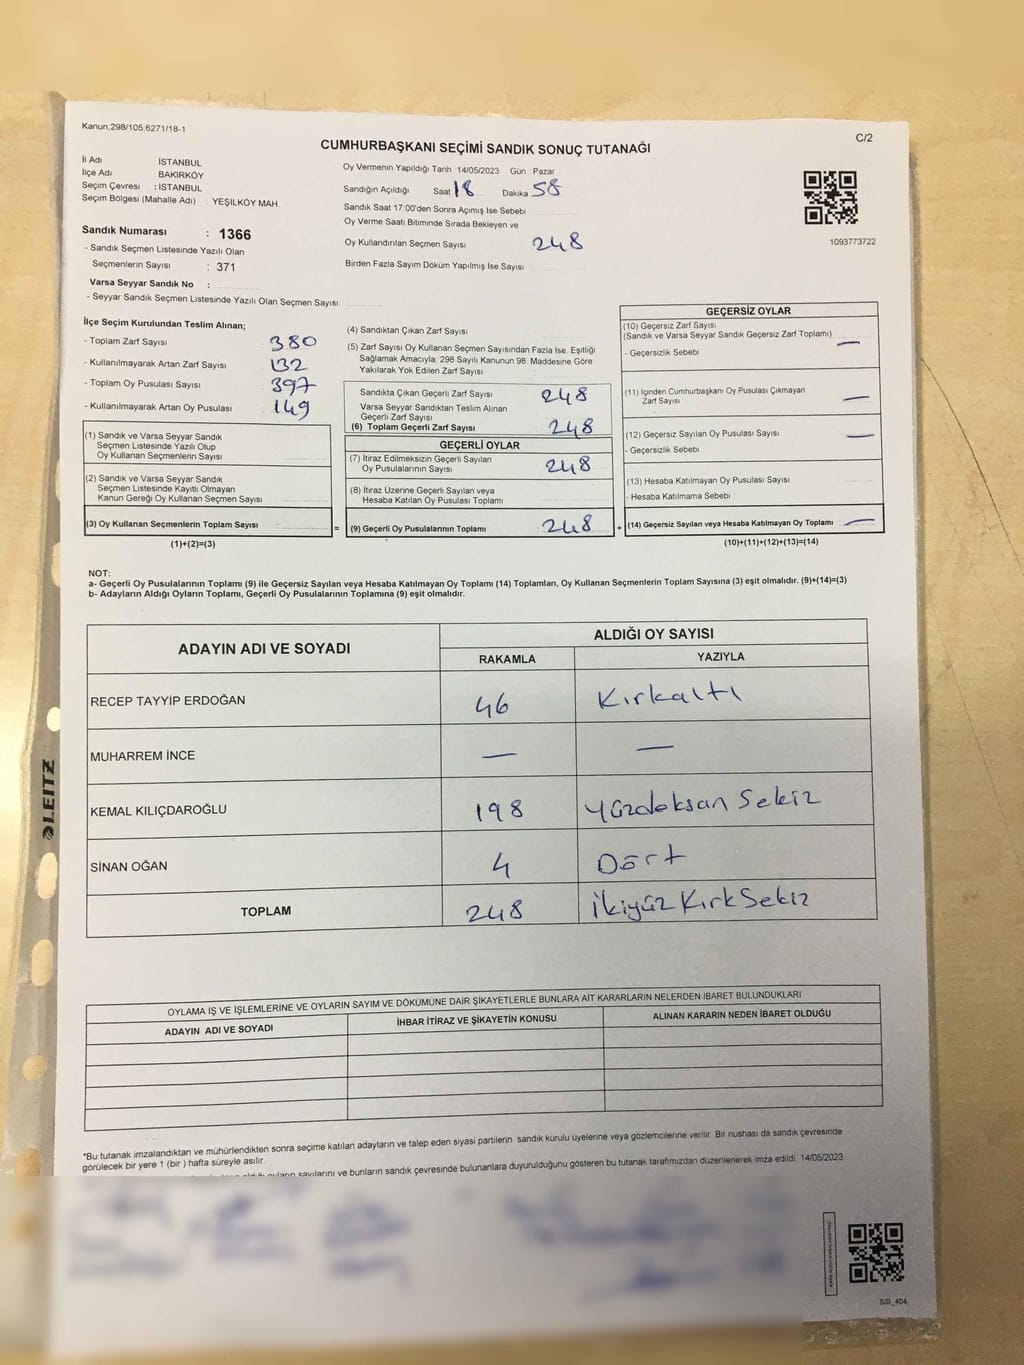 Kanun;298/105;6271/18-1
C/2
CUMHURBAŞKANI SEÇİMİ SANDIK SONUÇ TUTANAĞI
İl Adı : İSTANBUL
İlçe Adı : BAKIRKÖY
Seçim Çevresi : İSTANBUL
Seçim Bölgesi (Mahalle Adı) : YEŞİLKÖY MAH.
Oy Vermenin Yapıldığı Tarih 14/05/2023 Gün : Pazar
Sandığın Açıldığı Saat 18 Dakika 58
Sandık Saat 17:00'den Sonra Açımış İse Sebebi
Oy Verme Saati Bitiminde Sırada Bekleyen ve
Oy Kullandırılan Seçmen Sayısı 248
Birden Fazla Sayım Döküm Yapılmış İse Sayısı
1093773722
Sandık Numarası : 1366
- Sandık Seçmen Listesinde Yazılı Olan
Seçmenlerin Sayısı : 371
Varsa Seyyar Sandık No :
- Seyyar Sandık Seçmen Listesinde Yazılı Olan Seçmen Sayısı:
İlçe Seçim Kurulundan Teslim Alınan;
- Toplam Zarf Sayısı 380
- Kullanılmayarak Artan Zarf Sayısı 132
- Toplam Oy Pusulası Sayısı 397
- Kullanılmayarak Artan Oy Pusulası 149
(1) Sandık ve Varsa Seyyar Sandık
Seçmen Listesinde Yazılı Olup
Oy Kullanan Seçmenlerin Sayısı
(2) Sandık ve Varsa Seyyar Sandık
Seçmen Listesinde Kayıtlı Olmayan
Kanun Gereği Oy Kullanan Seçmen Sayısı
(3) Oy Kullanan Seçmenlerin Toplam Sayısı =
(1)+(2)=(3)
(4) Sandıktan Çıkan Zarf Sayısı
(5) Zarf Sayısı Oy Kullanan Seçmen Sayısından Fazla İse, Eşitliği
Sağlamak Amacıyla, 298 Sayılı Kanunun 98. Maddesine Göre
Yakılarak Yok Edilen Zarf Sayısı
Sandıkta Çıkan Geçerli Zarf Sayısı 248
Varsa Seyyar Sandıktan Teslim Alınan
Geçerli Zarf Sayısı
(6) Toplam Geçerli Zarf Sayısı 248
GEÇERLİ OYLAR
(7) İtiraz Edilmeksizin Geçerli Sayılan
Oy Pusulalarının Sayısı 248
(8) İtiraz Üzerine Geçerli Sayılan veya
Hesaba Katılan Oy Pusulası Toplamı
(9) Geçerli Oy Pusulalarının Toplamı 248 +
GEÇERSİZ OYLAR
(10) Geçersiz Zarf Sayısı
(Sandık ve Varsa Seyyar Sandık Geçersiz Zarf Toplamı) —
- Geçersizlik Sebebi
(11) İçinden Cumhurbaşkanı Oy Pusulası Çıkmayan
Zarf Sayısı —
(12) Geçersiz Sayılan Oy Pusulası Sayısı —
- Geçersizlik Sebebi
(13) Hesaba Katılmayan Oy Pusulası Sayısı
- Hesaba Katılmama Sebebi
(14) Geçersiz Sayılan veya Hesaba Katılmayan Oy Toplamı —
(10)+(11)+(12)+(13)=(14)
NOT:
a- Geçerli Oy Pusulalarının Toplamı (9) ile Geçersiz Sayılan veya Hesaba Katılmayan Oy Toplamı (14) Toplamları, Oy Kullanan Seçmenlerin Toplam Sayısına (3) eşit olmalıdır. (9)+(14)=(3)
b- Adayların Aldığı Oyların Toplamı, Geçerli Oy Pusulalarının Toplamına (9) eşit olmalıdır.
ADAYIN ADI VE SOYADI
ALDIĞI OY SAYISI
RAKAMLA YAZIYLA
RECEP TAYYİP ERDOĞAN 46 Kırkaltı
MUHARREM İNCE — —
KEMAL KILIÇDAROĞLU 198 Yüzdoksan Sekiz
SİNAN OĞAN 4 Dört
TOPLAM 248 İkiyüz Kırk Sekiz
OYLAMA İŞ VE İŞLEMLERİNE VE OYLARIN SAYIM VE DÖKÜMÜNE DAİR ŞİKAYETLERLE BUNLARA AİT KARARLARIN NELERDEN İBARET BULUNDUKLARI
ADAYIN ADI VE SOYADI İHBAR İTİRAZ VE ŞİKAYETİN KONUSU ALINAN KARARIN NEDEN İBARET OLDUĞU
*Bu tutanak imzalandıktan ve mühürlendikten sonra seçime katılan adayların ve talep eden siyasi partilerin sandık kurulu üyelerine veya gözlemcilerine verilir. Bir nüshası da sandık çevresinde
görülecek bir yere 1 (bir ) hafta süreyle asılır.
oyların sayılarını ve bunların sandık çevresinde bulunanlara duyurulduğunu gösteren bu tutanak tarafımızdan düzenlenerek imza edildi. 14/05/2023
LEITZ
SSI_404